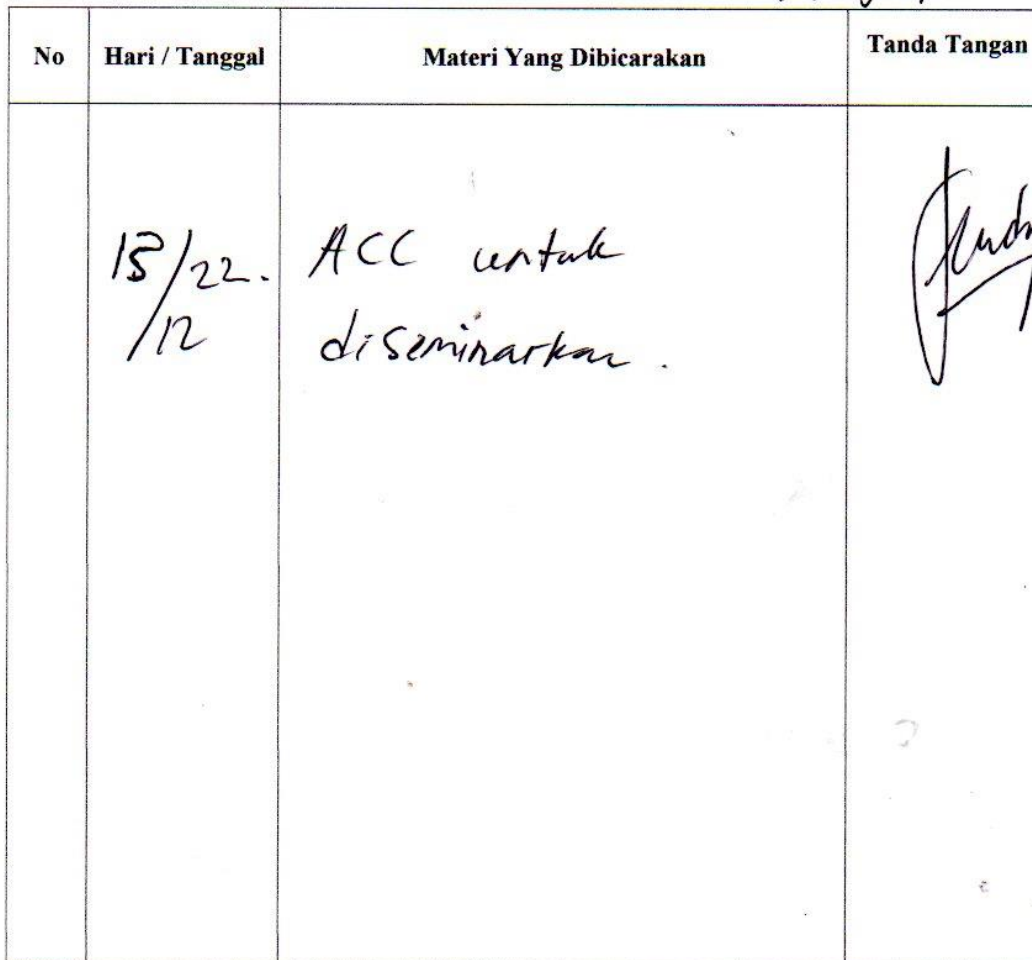 No Hari / Tanggal Materi Yang Dibicarakan Tanda Tangan
/22. ACC untuk
/12 diseminarkan.